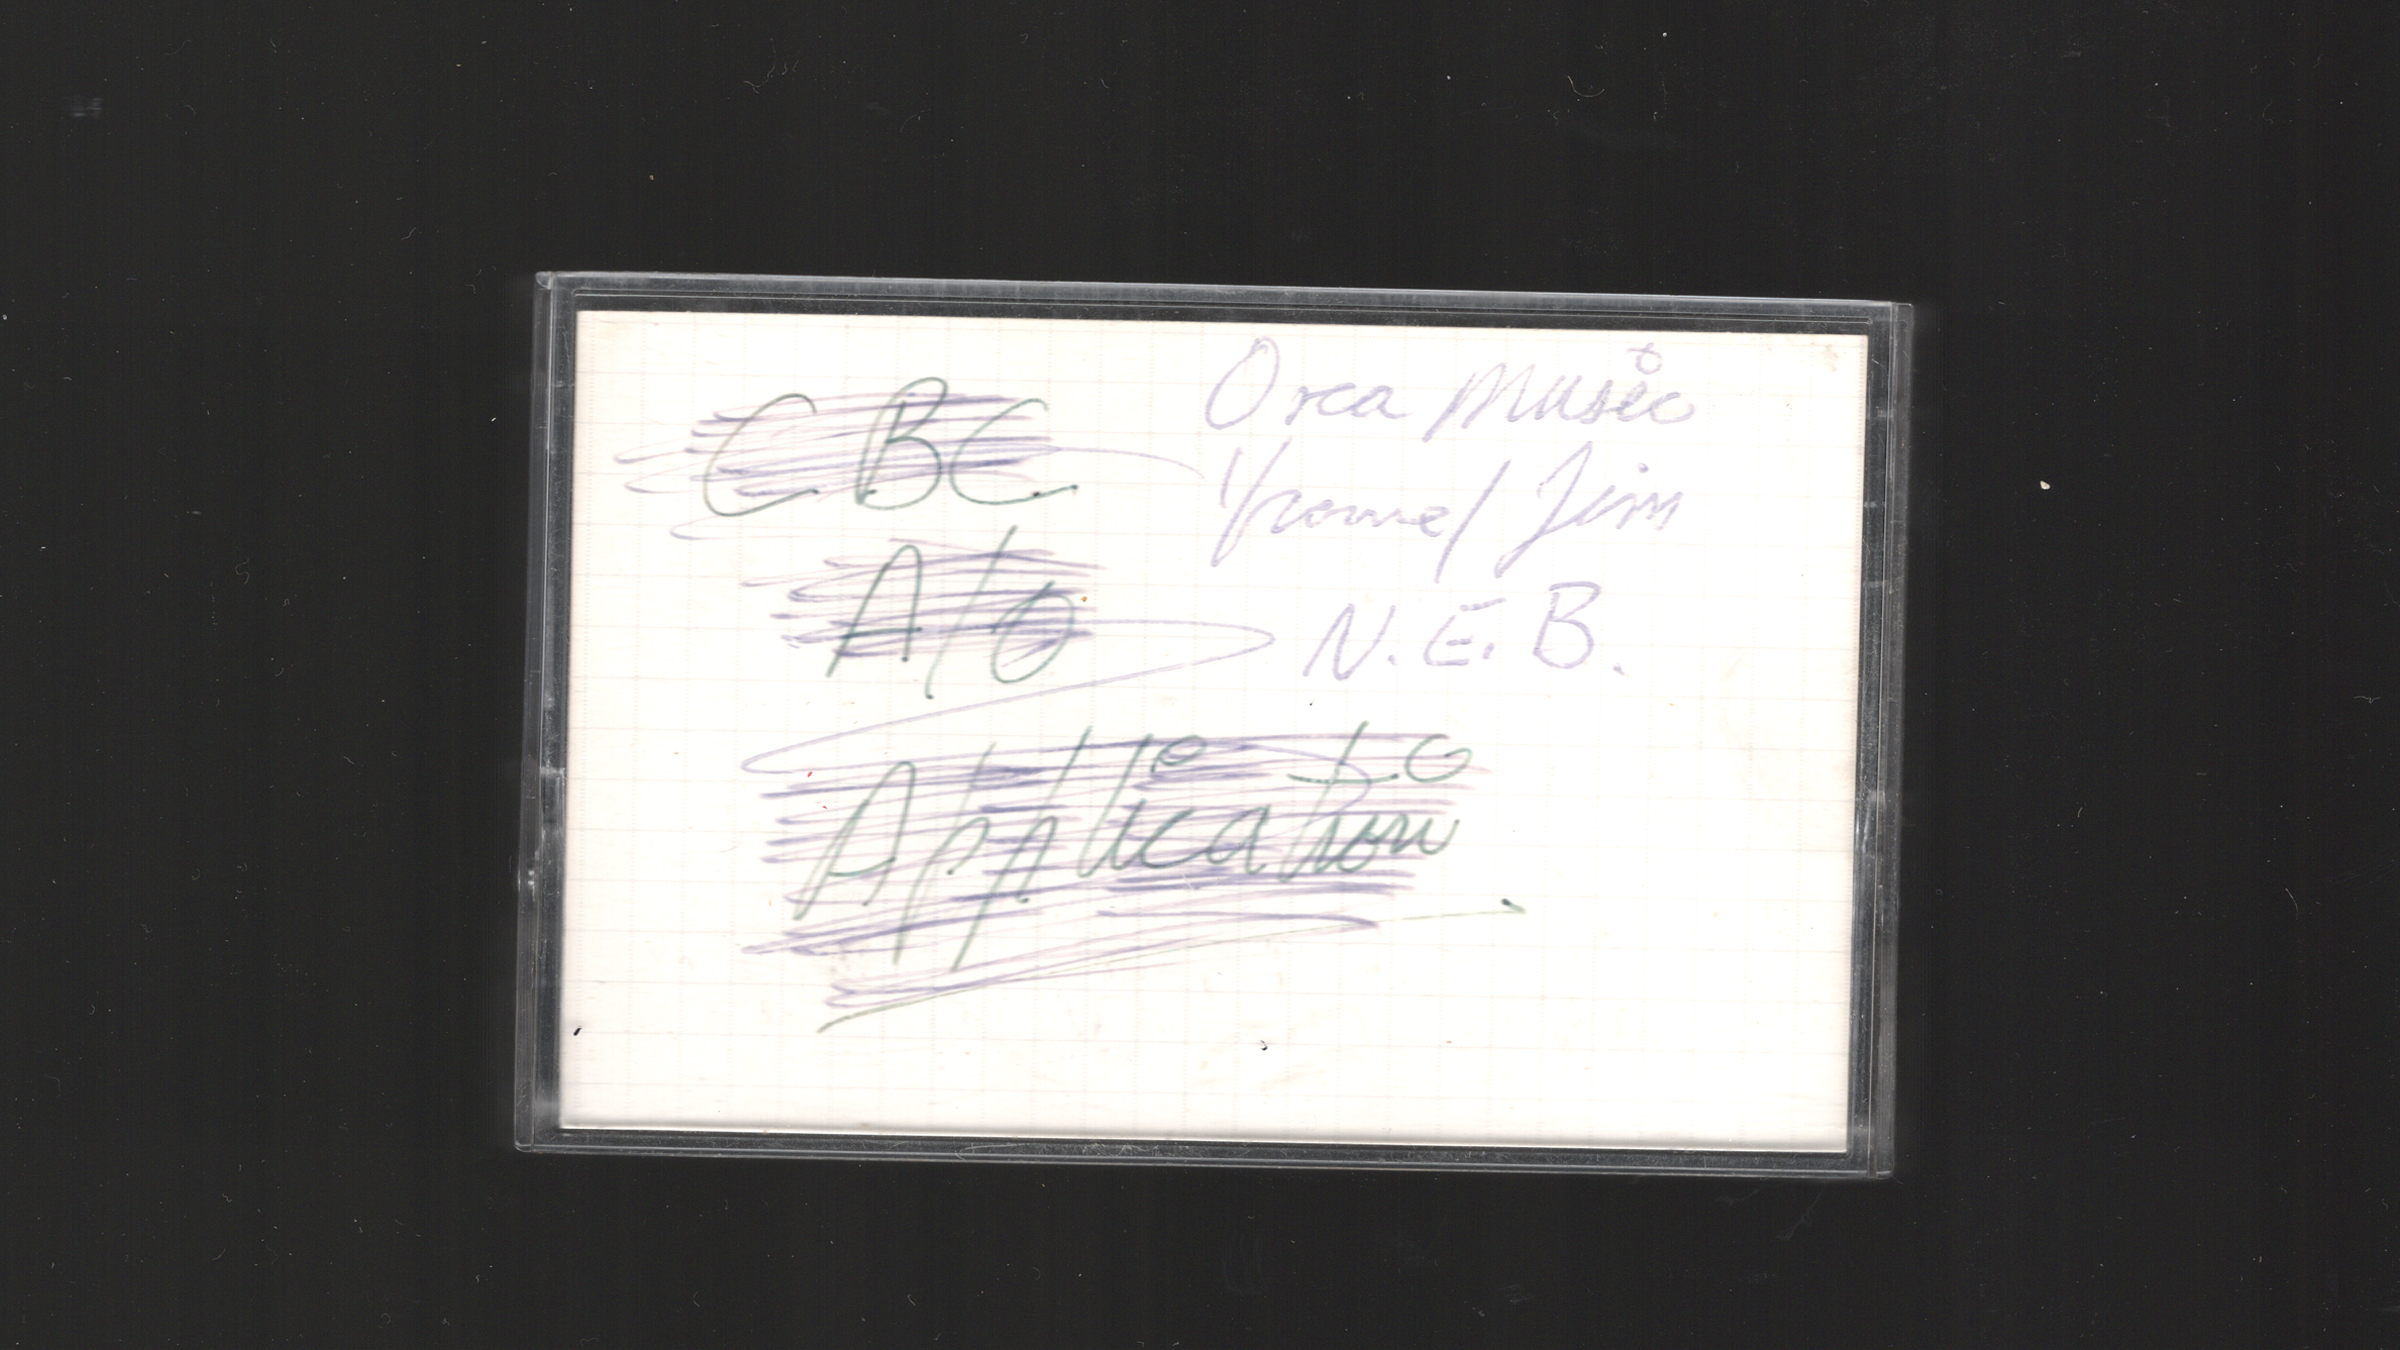 CBC
A/O
Application
Orca Music
Yvonne / Jim
N.E.B.